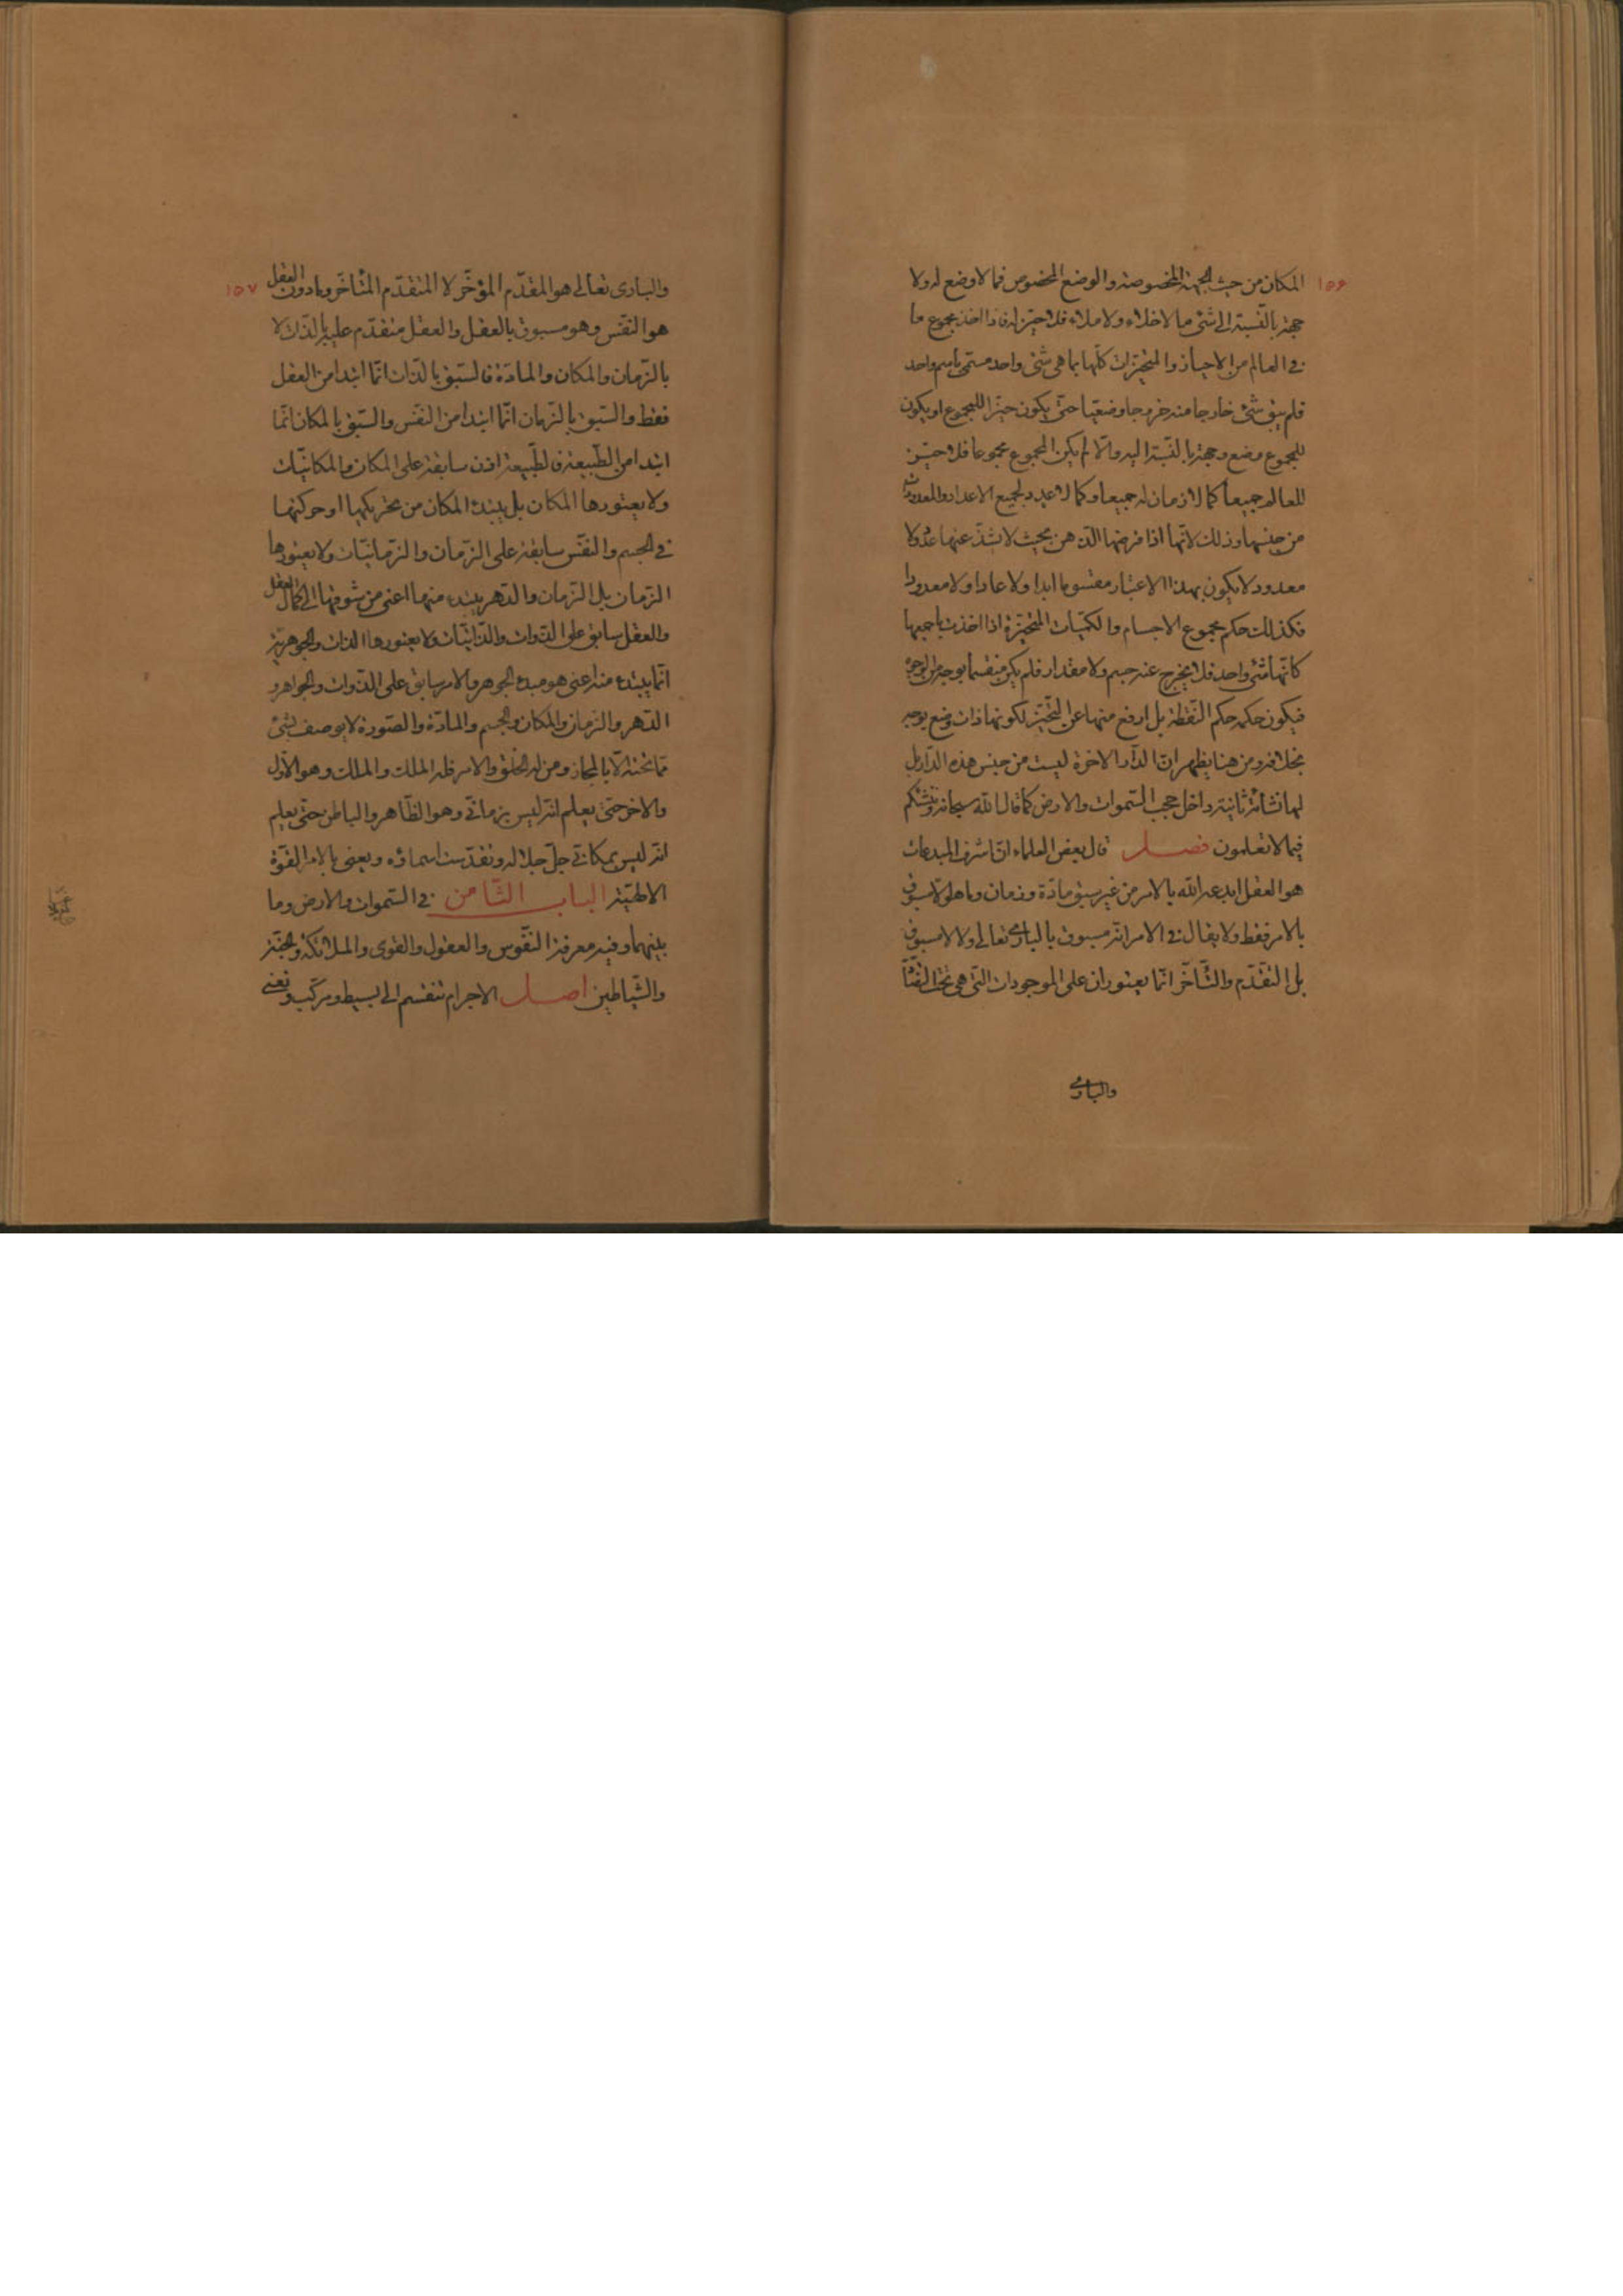 ١٥۶
المكان من حيث الجهة المخصوصة والوضع المخصوص فما لا وضع له ولا
جهة بالنسبة الى شئ ما لا خلاء ولا ملاء فلا حيّز له فاذا اخذ مجموع ما
فى العالم من الاحياز والمتحيّزات كلّها بما هى شئ واحد مسمّى باسم واحد
فلم يبق شئ خارجا منه خروجا وضعيّا حتّى يكون حيّزا للمجموع او يكون
للمجموع وضع وجهة بالنسبة اليه والّا لم يكن المجموع مجموعا فلا حيّز
للعالم جميعاً كما لا زمان له جميعاً وكما لا عدد لجميع الاعداد والمعدودات
من جنسها وذلك لانّها اذا فرضها الذهن بحيث لا شذّ عنها عدد ولا
معدود لا يكون بهذا الاعتبار مقسوما ابدا ولا عادا ولا معدودا
فكذلك حكم مجموع الاجسام والكميّات المتحيّزة اذا اخذت باجمعها
كانّها شئ واحد فلا يخرج عنه جسم ولا مقدار فلم يكن منقسماً بوجه من الوجوه
فيكون حكمه حكم النقطة بل ارفع منها عن التحيّز لكونها ذات وضع بوجه
بخلافه ومن هنا يظهر انّ الدّار الاخرة ليست من جنس هذه الدّار بل
لها نشأة ثانية داخل حجب السّموات والارض كما قال الله سبحانه وننشئكم
فيما لا تعلمون فصل قال بعض العلماء انّ اشرف المبدعات
هو العقل ابدعه الله بالامر من غير سبق مادّة وزمان وما هو الّا مسبوق
بالامر فقط ولا يقال فى الامر انّه مسبوق بالبارى تعالى ولا لا مسبوق
بل التقدّم والتّأخّر انّما يعتوران على الموجودات التى هى تحت التضادّ
والبارى
١٥٧
والبارى تعالى هو المقدّم المؤخّر لا المتقدّم المتأخّر وما دون العقل
هو النّفس وهو مسبوق بالعقل والعقل متقدّم عليه بالذّات لا
بالزّمان والمكان والمادّة فالسّبق بالذّات انّما ابتدا من العقل
فقط والسّبق بالزّمان انّما ابتدا من النّفس والسّبق بالمكان انّما
ابتدا من الطّبيعة فالطّبيعة اذن سابقة على المكان والمكانيّات
ولا يعتورها المكان بل يبتدء المكان من تحريكها او حركتها
فى الجسم والنّفس سابقة على الزّمان والزّمانيّات ولا يعتورها
الزّمان بل الزّمان والدّهر يبتدء منها اعنى من شوقها الى كمال العقل
والعقل سابق على الذّوات والذّاتيّات ولا يعتورها الذات والجوهريّة
انّما يبتدء منه اعنى هو مبدء الجوهر والامر سابق على الذّوات والجواهر و
الدّهر والزّمان والمكان والجسم والمادّة والصّورة لا يوصف بشئ
ممّا تحته الّا بالمجاز ومن له الخلق والامر فله الملك والملك وهو الاوّل
والاخر حتّى يعلم انّه ليس بزمانّى وهو الظّاهر والباطن حتّى يعلم
انّه ليس بمكانّى جلّ جلاله وتقدّست اسماؤه ويعنى بالامر القوّة
الالهيّة الباب الثّامن فى السّموات والارض وما
بينهما وفيه معرفة النّفوس والعقول والقوى والملائكة والجنّة
والشّياطين اصل الاجرام تنقسم الى بسيط ومركّب ونعنى